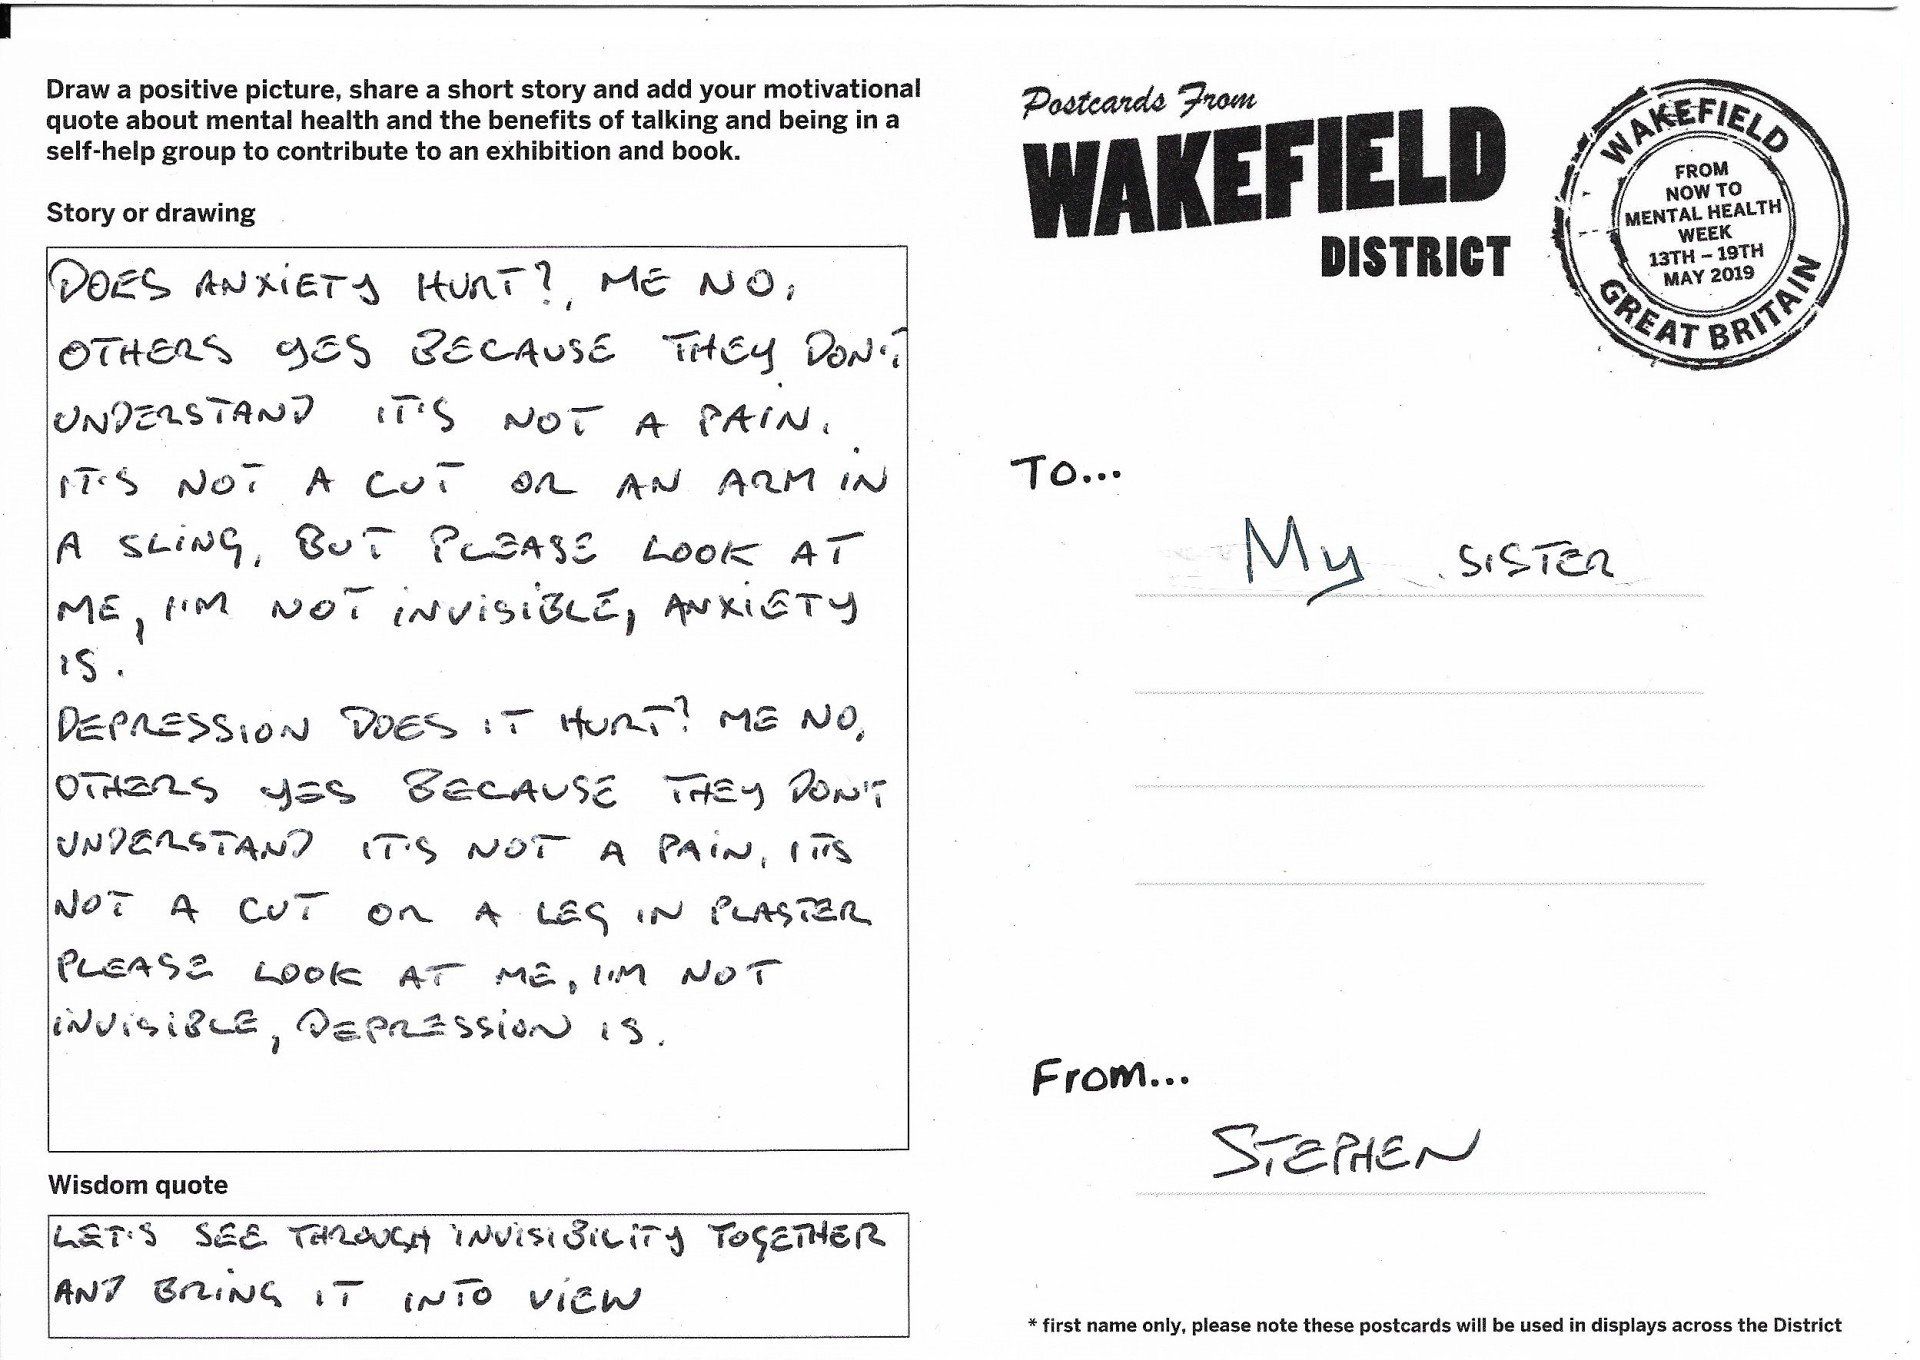 Draw a positive picture, share a short story and add your motivational
quote about mental health and the benefits of talking and being in a
self-help group to contribute to an exhibition and book.
Story or drawing
DOES ANXIETY HURT?, ME NO,
OTHERS YES BECAUSE THEY DON'T
UNDERSTAND IT'S NOT A PAIN.
IT'S NOT A CUT OR AN ARM IN
A SLING, BUT PLEASE LOOK AT
ME, I'M NOT INVISIBLE, ANXIETY
IS.
DEPRESSION DOES IT HURT? ME NO,
OTHERS YES BECAUSE THEY DON'T
UNDERSTAND IT'S NOT A PAIN, ITS
NOT A CUT OR A LEG IN PLASTER
PLEASE LOOK AT ME, I'M NOT
INVISIBLE, DEPRESSION IS.
Wisdom quote
LET'S SEE THROUGH INVISIBILITY TOGETHER
AND BRING IT INTO VIEW
Postcards From
WAKEFIELD
DISTRICT
WAKEFIELD
FROM
NOW TO
MENTAL HEALTH
WEEK
13TH – 19TH
MAY 2019
GREAT BRITAIN
To...
My SISTER
From...
STEPHEN
* first name only, please note these postcards will be used in displays across the District